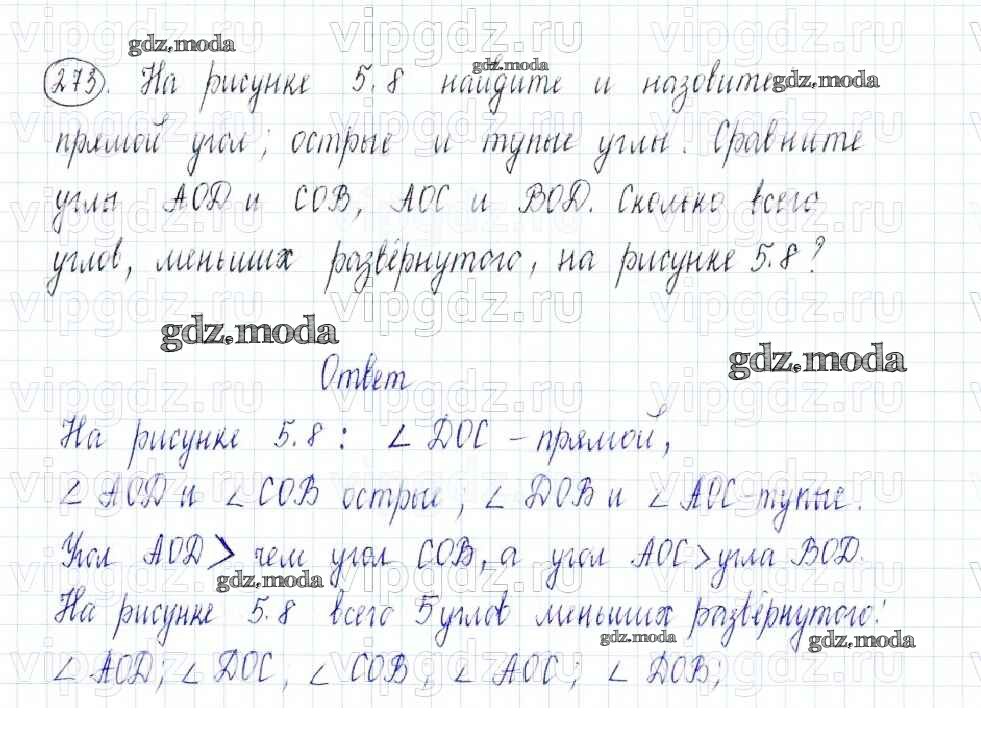 273. На рисунке 5.8 найдите и назовите
прямой угол; острые и тупые углы. Сравните
углы AOD и COB, AOC и BOD. Сколько всего
углов, меньших развёрнутого, на рисунке 5.8?
Ответ
На рисунке 5.8: ∠ DOC - прямой,
∠ AOD и ∠ COB острые; ∠ DOB и ∠ AOC - тупые.
Угол AOD > чем угол COB, а угол AOC > угла BOD.
На рисунке 5.8 всего 5 углов меньших развёрнутого:
∠ AOD; ∠ DOC, ∠ COB; ∠ AOC; ∠ DOB;
gdz.moda
gdz.moda
gdz.moda
gdz.moda
gdz.moda
gdz.moda
gdz.moda
gdz.moda
vipgdz.ru